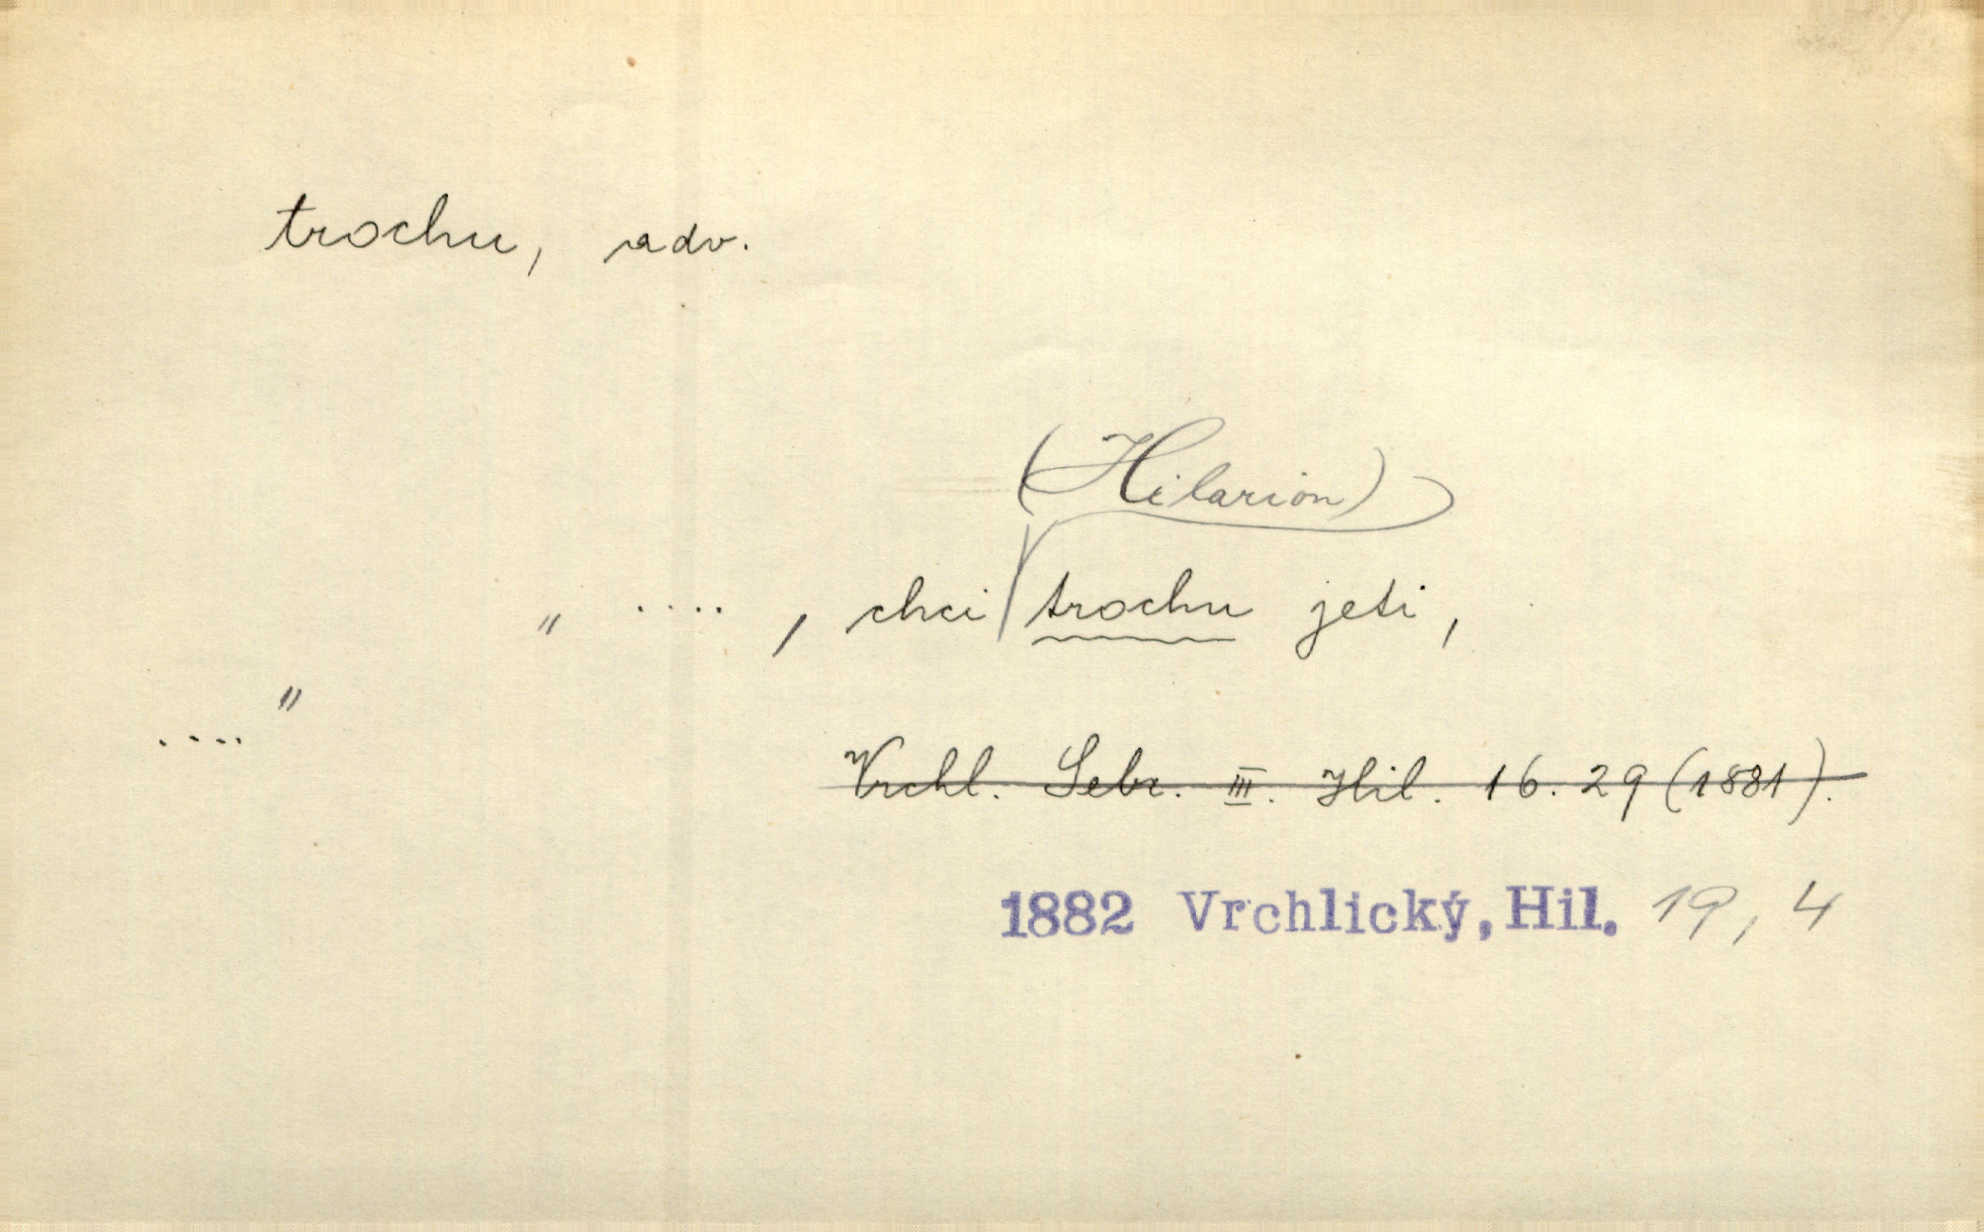 trochu, adv.
(Hilarion)
„ .... , chci trochu jeti,
.... "
Vrchl. Sebr. III. Hil. 16. 29 (1881).
1882 Vrchlický, Hil. 19, 4